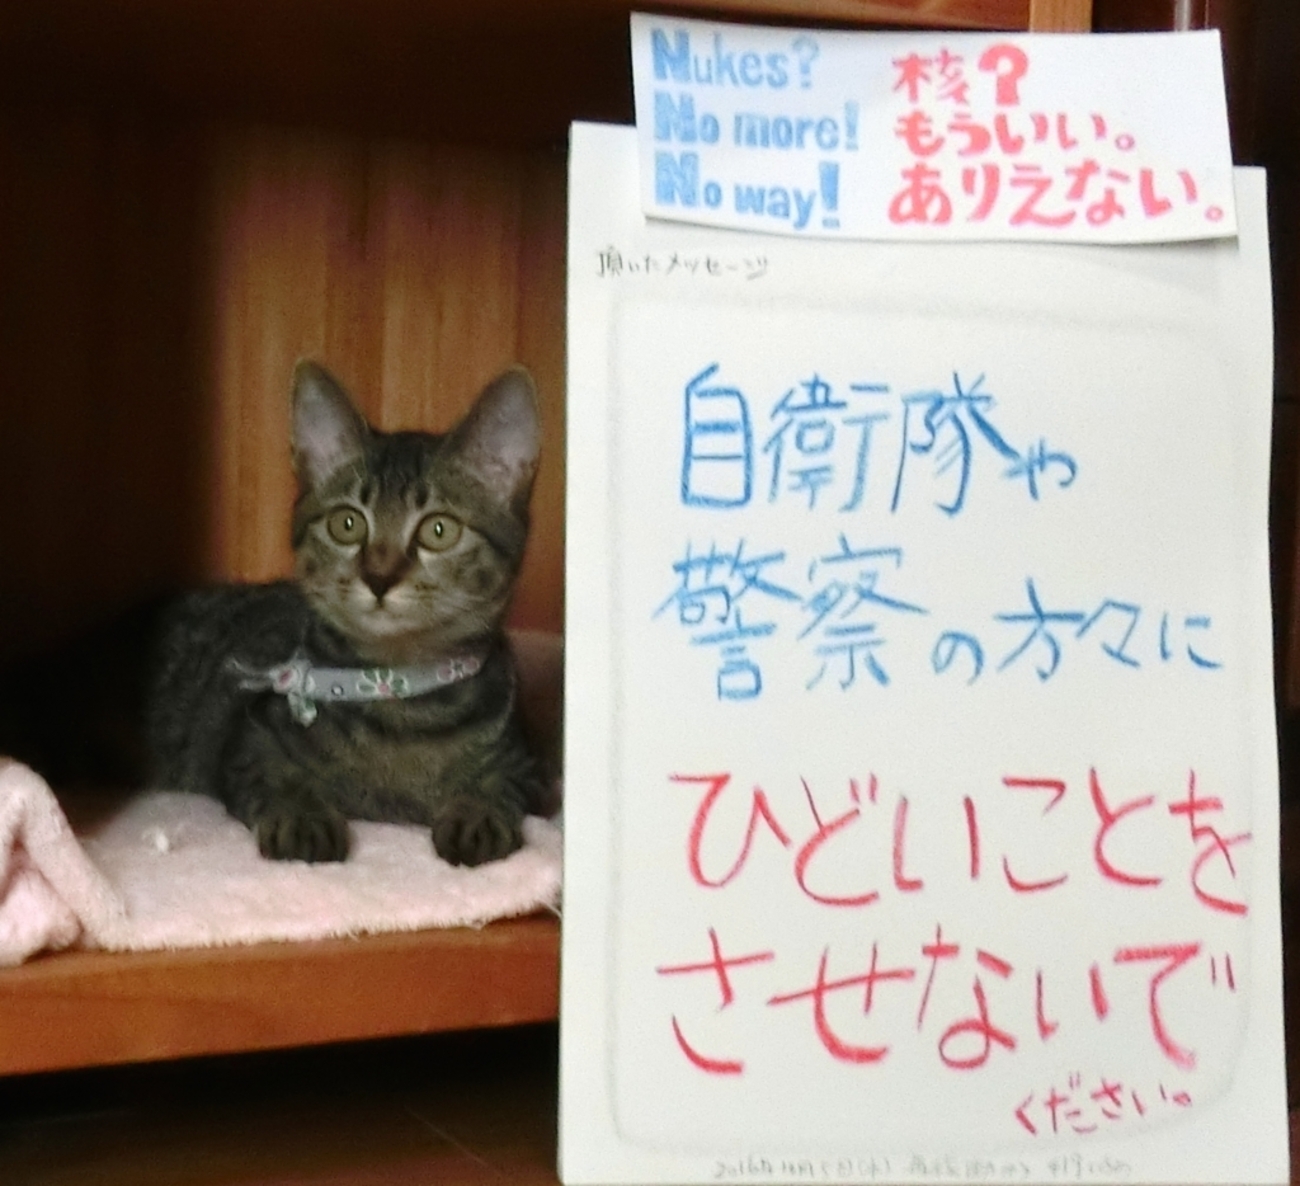 Nukes?
No more!
No way!
核?
もういい。
ありえない。
頂いたメッセージ
自衛隊や
警察の方々に
ひどいことを
させないで
ください。